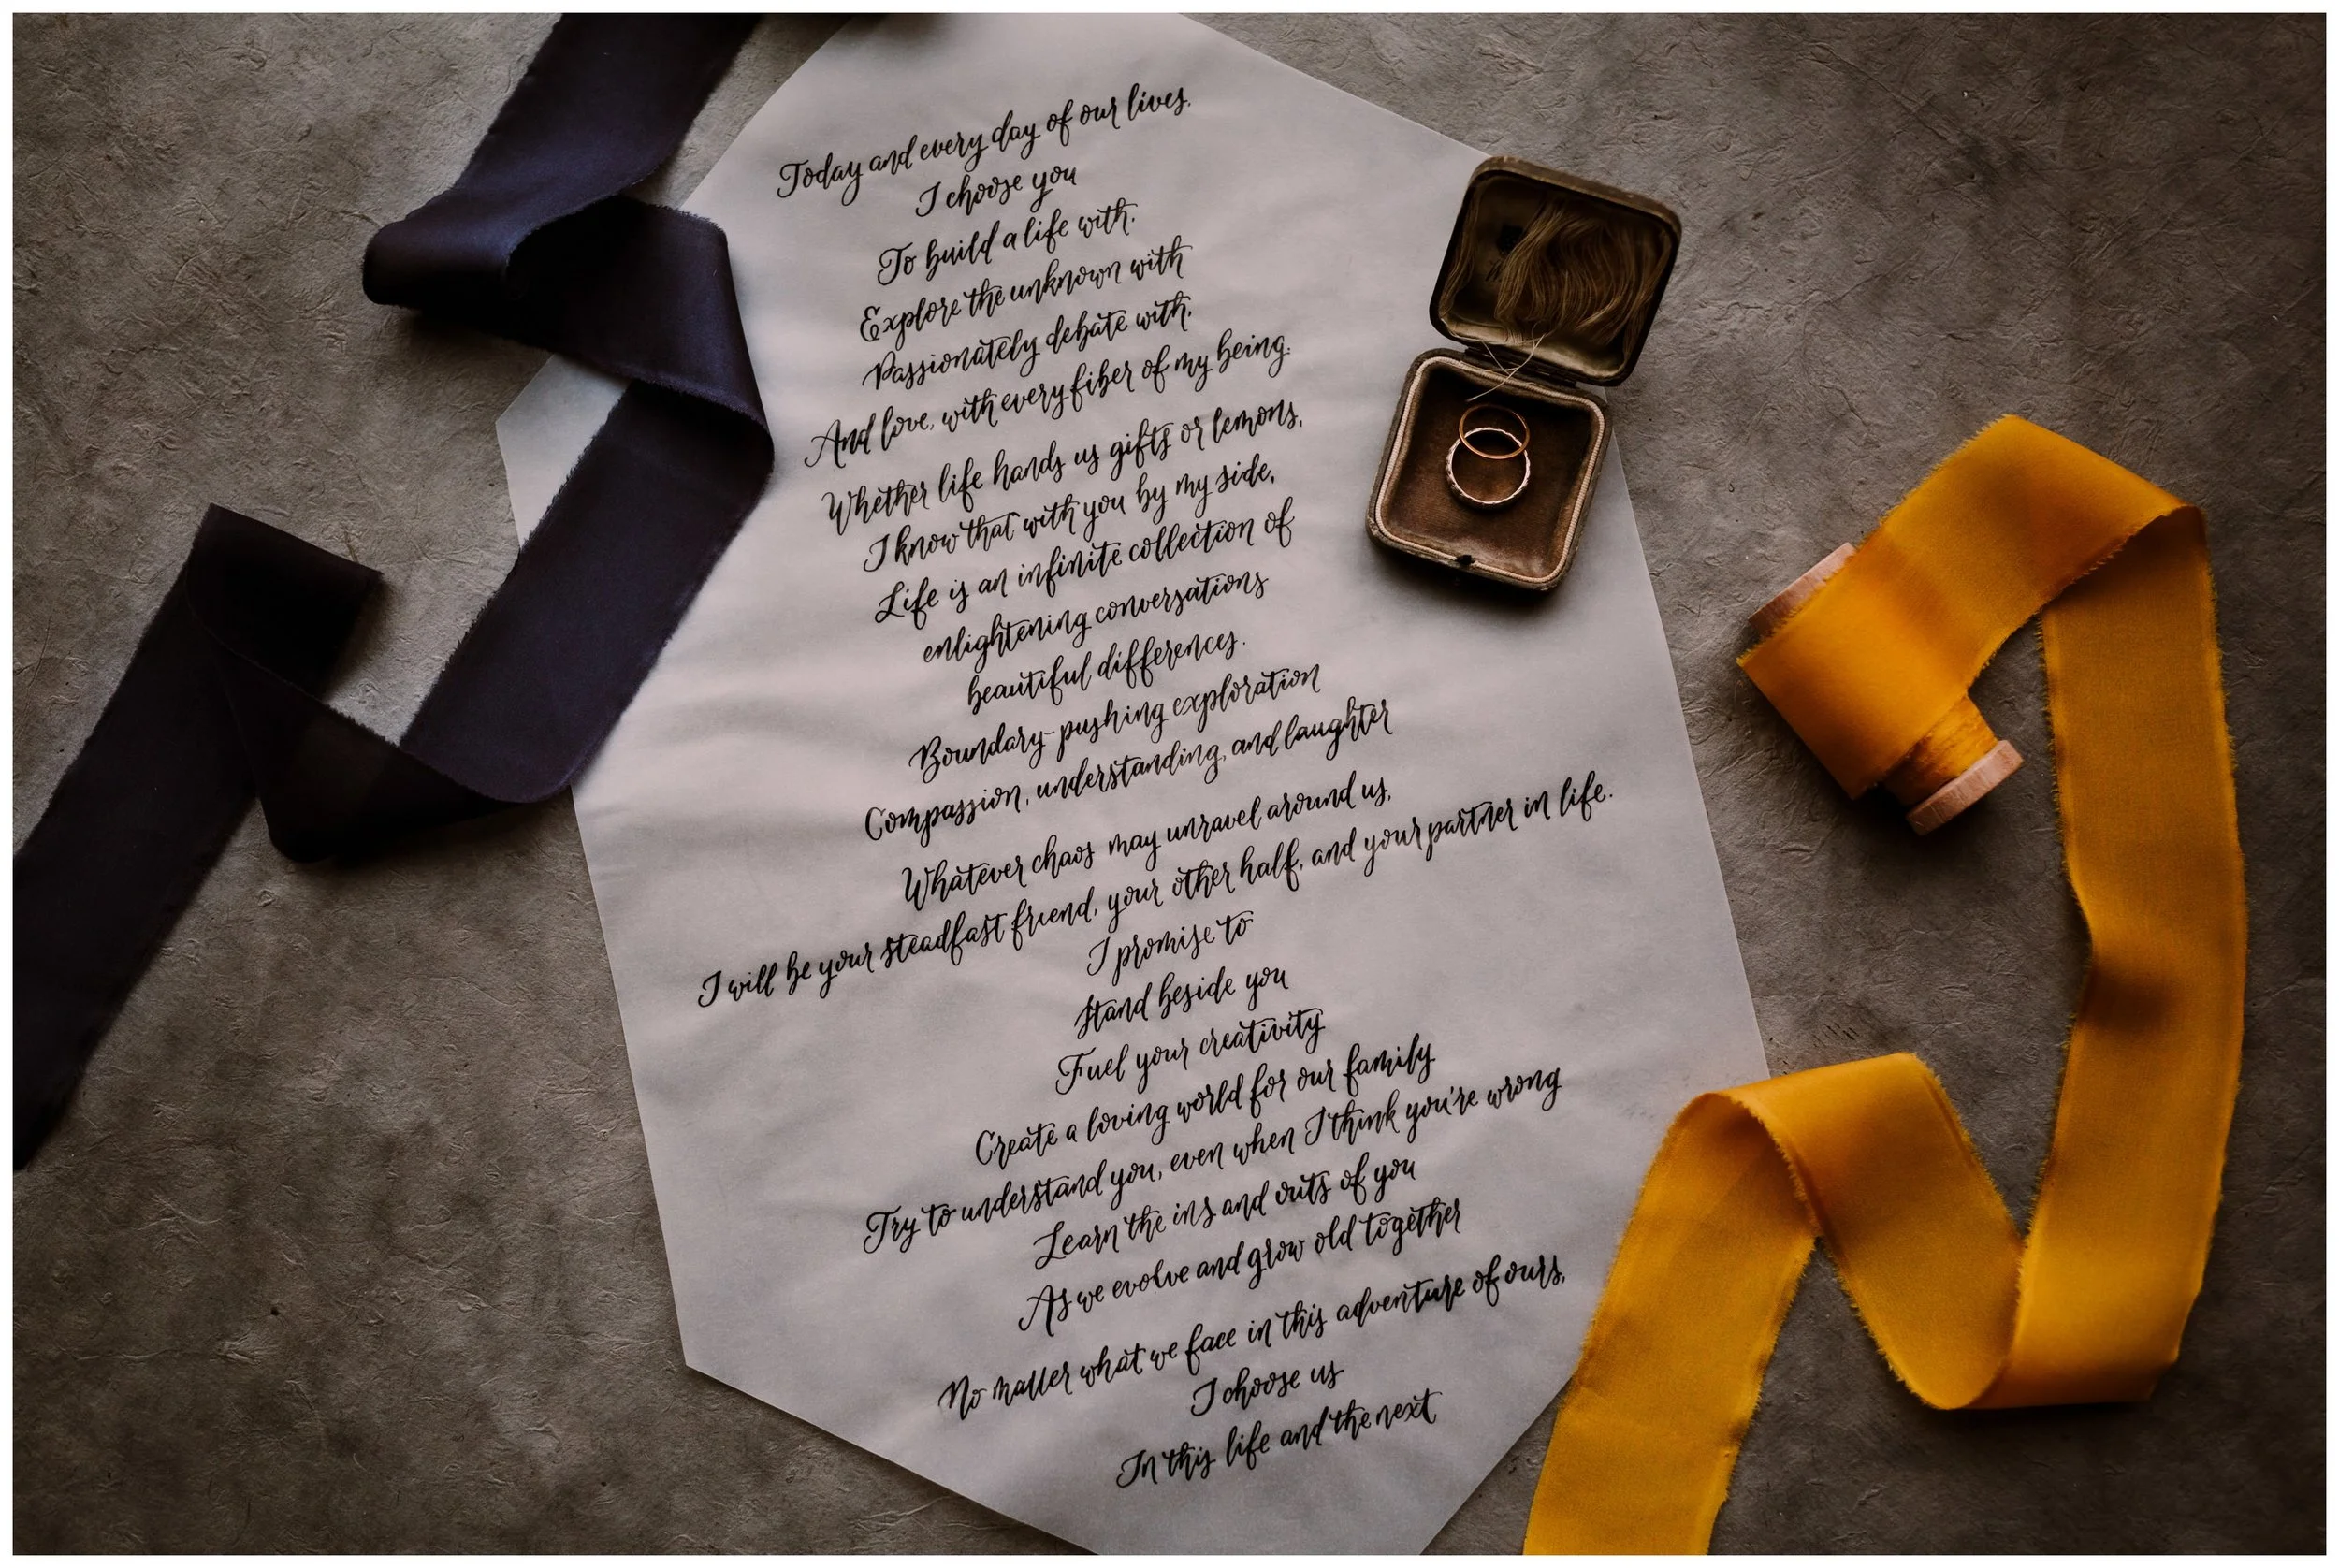 Today and every day of our lives,
I choose you
To build a life with,
Explore the unknown with
Passionately debate with,
And love, with every fiber of my being.
Whether life hands us gifts or lemons,
I know that with you by my side,
Life is an infinite collection of
enlightening conversations
beautiful differences.
Boundary-pushing exploration
Compassion, understanding, and laughter
Whatever chaos may unravel around us,
I will be your steadfast friend, your other half, and your partner in life.
I promise to
stand beside you
Fuel your creativity
Create a loving world for our family
Try to understand you, even when I think you're wrong
Learn the ins and outs of you
As we evolve and grow old together
No matter what we face in this adventure of ours,
I choose us
In this life and the next